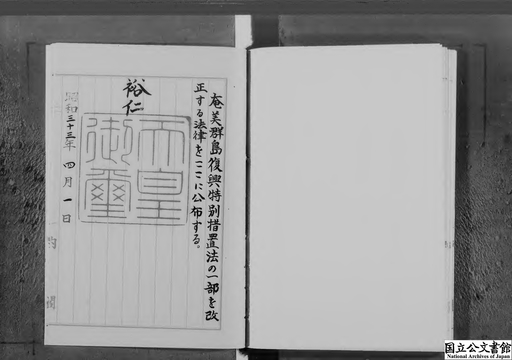 奄美群島復興特別措置法の一部を改
正する法律をここに公布する。
裕仁
天皇
御璽
昭和三十三年四月一日
内閣
国立公文書館
National Archives of Japan